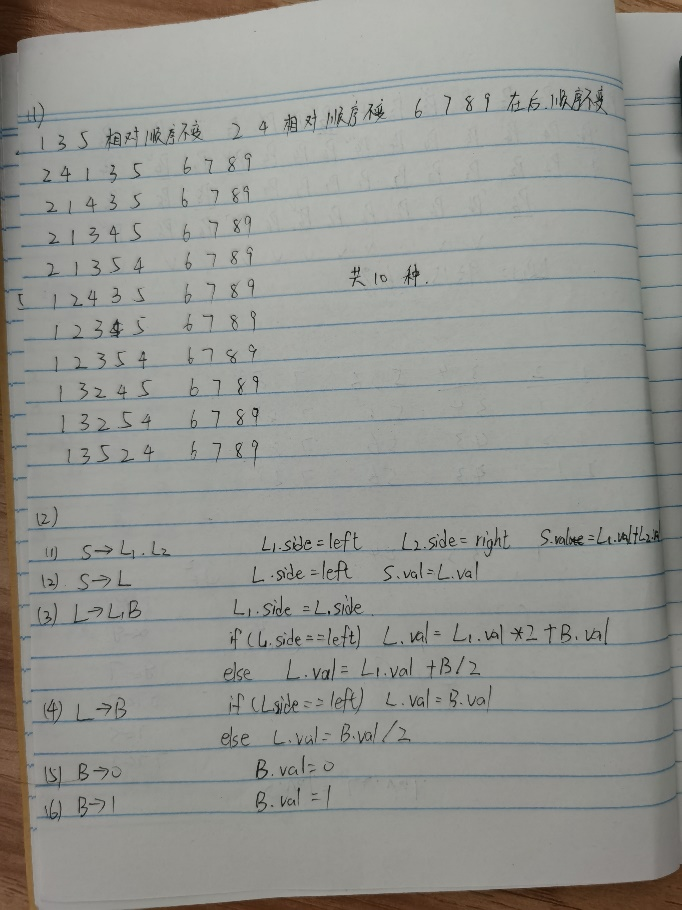 (1)
1 3 5 相对顺序不变 2 4 相对顺序不变 6 7 8 9 在后.顺序不变
2 4 1 3 5 6 7 8 9
2 1 4 3 5 6 7 8 9
2 1 3 4 5 6 7 8 9
2 1 3 5 4 6 7 8 9
1 2 4 3 5 6 7 8 9 共10种.
1 2 3 4 5 6 7 8 9
1 2 3 5 4 6 7 8 9
1 3 2 4 5 6 7 8 9
1 3 2 5 4 6 7 8 9
1 3 5 2 4 6 7 8 9
(2)
(1) S→L1.L2 L1.side=left L2.side=right S.value=L1.val+L2.val
(2) S→L L.side=left S.val=L.val
(3) L→L1B L1.side=L.side
if(L.side==left) L.val=L1.val*2+B.val
else L.val=L1.val+B/2
(4) L→B if(L.side==left) L.val=B.val
else L.val=B.val/2
(5) B→0 B.val=0
(6) B→1 B.val=1